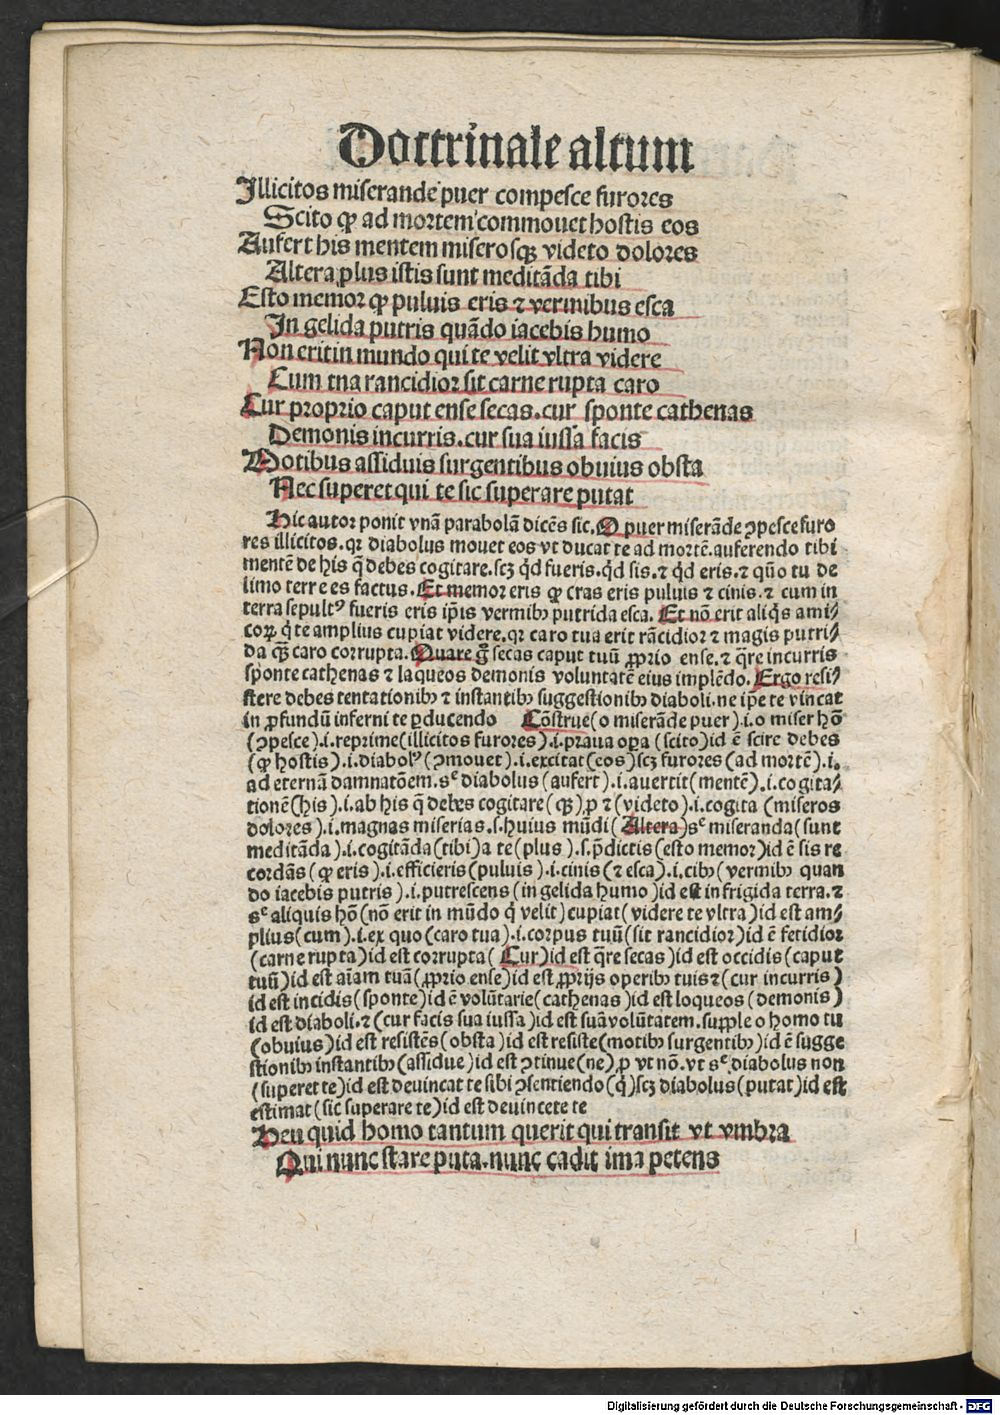 Doctrinale altum
Illicitos miserande puer compesce furores
Scito ꝙ ad mortem commouet hostis eos
Aufert his mentem miserosqꝫ videto dolores
Altera plus istis sunt meditãda tibi
Esto memor ꝙ puluis eris ⁊ vermibus esca
In gelida putris quãdo iacebis humo
Non erit in mundo qui te velit vltra videre
Cum tua rancidior sit carne rupta caro
Cur proprio caput ense secas.cur sponte cathenas
Demonis incurris.cur sua iussa facis
Motibus assiduis surgentibus obuius obsta
Nec superet qui te sic superare putat
Hic autor ponit vnã parabolã dicẽs sic. O puer miserãde ꝯpesce furo
res illicitos.qꝛ diabolus mouet eos vt ducat te ad mortẽ.auferendo tibi
mentẽ de his q̃ debes cogitare.scꝫ qͥd fueris.qͥd sis.⁊ qͥd eris.⁊ qũo tu de
limo terre es factus. Et memor eris ꝙ cras eris puluis ⁊ cinis.⁊ cum in
terra sepultꝰ fueris eris ip̃is vermibꝫ putrida esca. Et nõ erit aliqͥs ami⸗
coꝝ qͥ te amplius cupiat videre.qꝛ caro tua erit rãcidior ⁊ magis putri⸗
da qꝫ̃ caro corrupta. Quare gͦ secas caput tuũ ꝓprio ense.⁊ q̃re incurris
sponte cathenas ⁊ laqueos demonis voluntatẽ eius implẽdo. Ergo resi⸗
stere debes tentationibꝫ ⁊ instantibꝫ suggestionibꝫ diaboli.ne ip̃e te vincat
in ꝓfundũ inferni te ꝑducendo Cõstrue(o miserãde puer).i.o miser hõ
(ꝯpesce).i.reprime(illicitos furores).i.praua oꝑa (scito)id ẽ scire debes
(ꝙ hostis).i.diabolꝰ (ꝯmouet).i.excitat(eos)scꝫ furores(ad mortẽ).i.
ad eternã damnatõem.sᶜ diabolus (aufert).i.auertit(mentẽ).i.cogita⸗
tionẽ(his).i.ab his q̃ debes cogitare(qꝫ)ꝓ ⁊(videto).i.cogita (miseros
dolores).i.magnas miserias.s.huius mũdi(Altera)sᶜ miseranda(sunt
meditãda).i.cogitãda(tibi)a te(plus).s.p̃dictis(esto memor)id ẽ sis re
cordãs(ꝙ eris).i.efficieris(puluis).i.cinis(⁊ esca).i.cibꝫ(vermibꝫ quan
do iacebis putris).i.putrescens(in gelida humo)id est in frigida terra.⁊
sᶜ aliquis hõ(nõ erit in mũdo qͥ velit)cupiat(videre te vltra)id est am⸗
plius(cum).i.ex quo(caro tua).i.corpus tuũ(sit rancidior)id ẽ fetidior
(carne rupta)id est corrupta( Cur)id est q̃re secas)id est occidis(caput
tuũ)id est aĩam tuã(ꝓprio ense)id est ꝓprijs operibꝫ tuis⁊(cur incurris)
id est incidis(sponte)id ẽ volũtarie(cathenas)id est loqueos(demonis)
id est diaboli.⁊(cur facis sua iussa)id est suã volũtatem.supple o homo tu
(obuius)id est resistẽs(obsta)id est resiste(motibꝫ surgentibꝫ)id ẽ sugge
stionibꝫ instantibꝫ(assidue)id est ꝯtinue(ne)ꝓ vt nõ.vt sᶜ diabolus non
(superet te)id est deuincat te sibi ꝯsentiendo(qͥ)scꝫ diabolus(putat)id est
estimat(sic superare te)id est deuincete te
Heu quid homo tantum querit qui transit vt vmbra
Qui nunc stare puta.nunc cadit ima petens
Digitalisierung gefördert durch die Deutsche Forschungsgemeinschaft - DFG